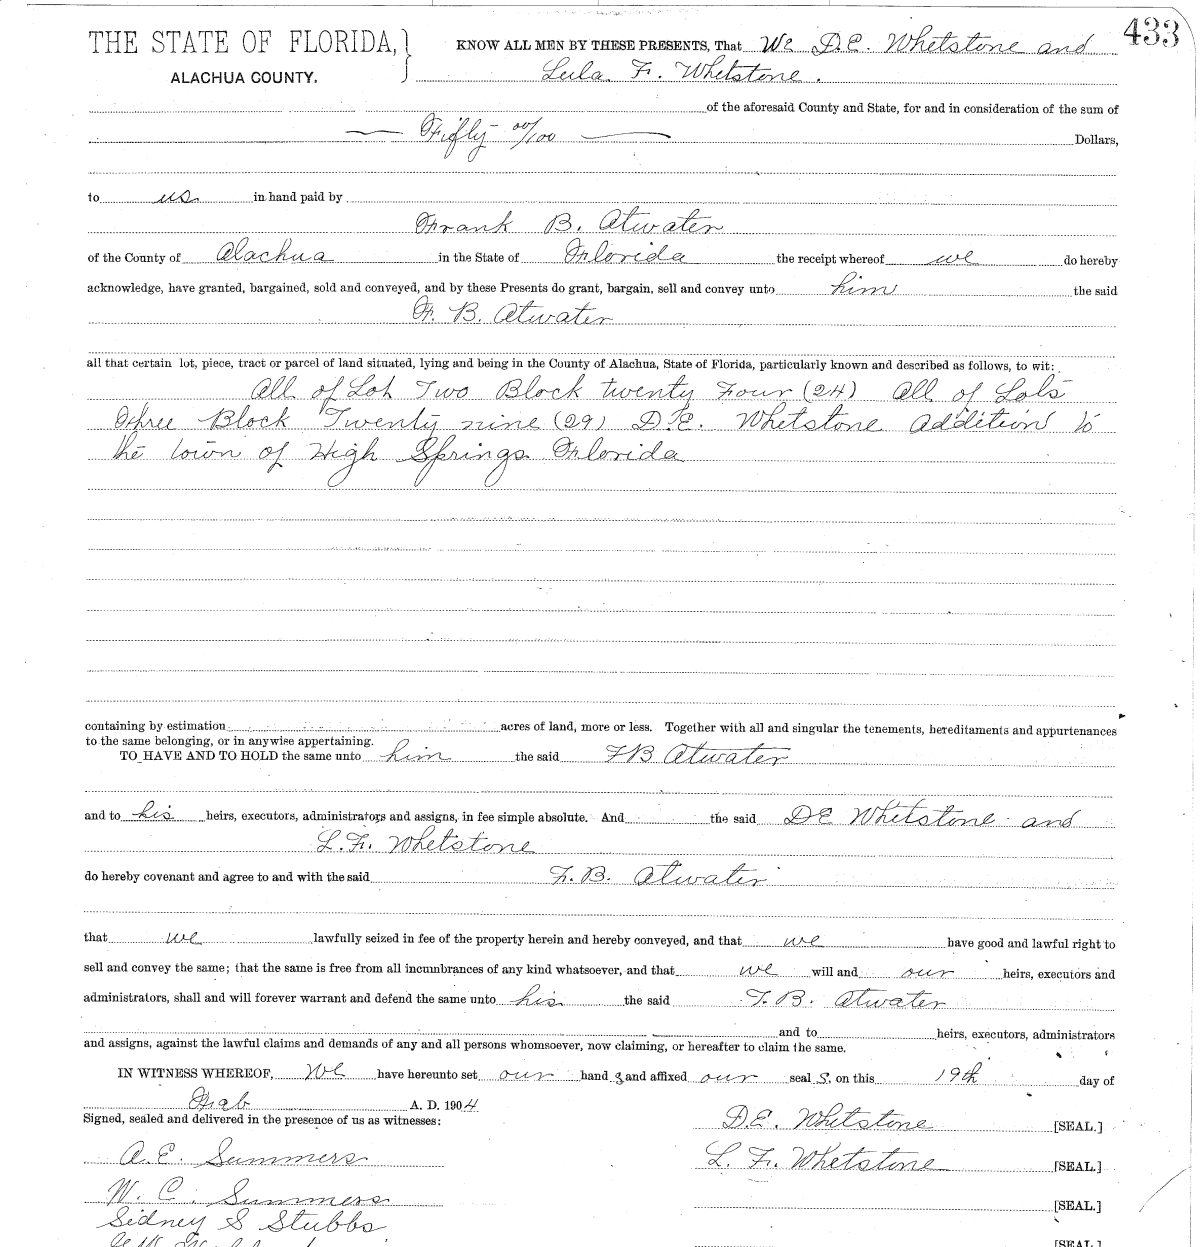 433
THE STATE OF FLORIDA,} KNOW ALL MEN BY THESE PRESENTS, That We D.E. Whetstone and
ALACHUA COUNTY. Lula F. Whetstone.
of the aforesaid County and State, for and in consideration of the sum of
Fifty 00/100 Dollars,
to us in hand paid by
Frank B. Atwater
of the County of Alachua in the State of Florida the receipt whereof we do hereby
acknowledge, have granted, bargained, sold and conveyed, and by these Presents do grant, bargain, sell and convey unto him the said
F. B. Atwater
all that certain lot, piece, tract or parcel of land situated, lying and being in the County of Alachua, State of Florida, particularly known and described as follows, to wit:
All of Lot Two Block twenty Four (24) All of Lots
Three Block Twenty nine (29) D.E. Whetstone Addition to
the town of High Springs Florida
containing by estimation acres of land, more or less. Together with all and singular the tenements, hereditaments and appurtenances
to the same belonging, or in anywise appertaining.
TO HAVE AND TO HOLD the same unto him the said F B Atwater
and to his heirs, executors, administrators and assigns, in fee simple absolute. And the said D E Whetstone and
L. F. Whetstone
do hereby covenant and agree to and with the said F. B. Atwater
that we lawfully seized in fee of the property herein and hereby conveyed, and that we have good and lawful right to
sell and convey the same; that the same is free from all incumbrances of any kind whatsoever, and that we will and our heirs, executors and
administrators, shall and will forever warrant and defend the same unto his the said F. B. Atwater
and to heirs, executors, administrators
and assigns, against the lawful claims and demands of any and all persons whomsoever, now claiming, or hereafter to claim the same.
IN WITNESS WHEREOF, We have hereunto set our hand s and affixed our seal S. on this 19th day of
A. D. 1904
Signed, sealed and delivered in the presence of us as witnesses: D.E. Whetstone [SEAL.]
A. E. Summers L. F. Whetstone [SEAL.]
W. C. Summers [SEAL.]
Sidney S Stubbs
[SEAL.]